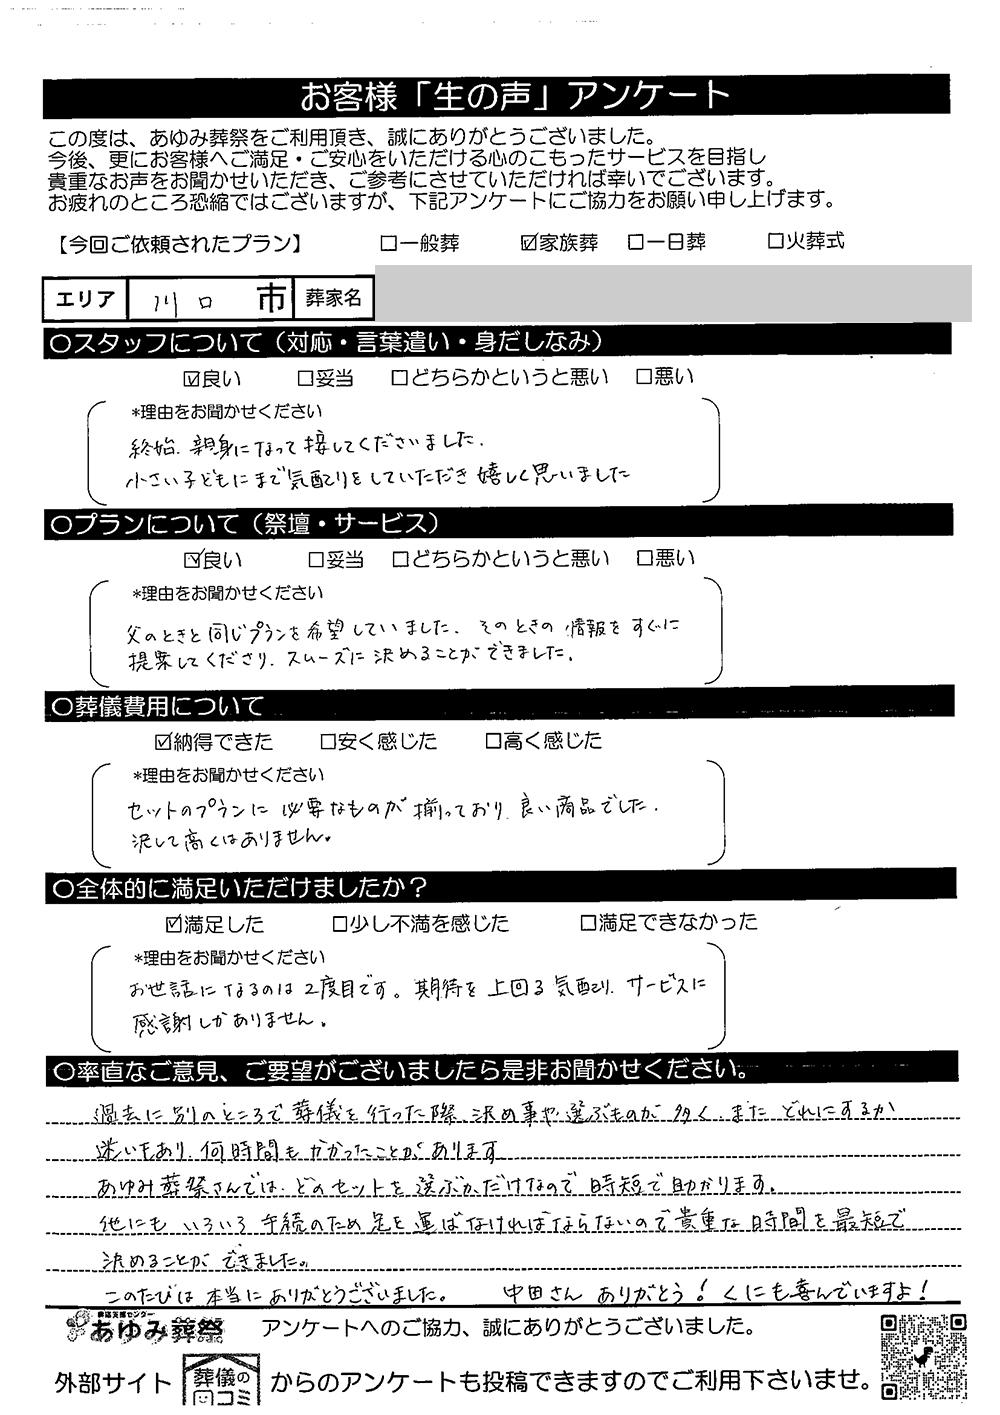 お客様「生の声」アンケート
この度は、あゆみ葬祭をご利用頂き、誠にありがとうございました。
今後、更にお客様へご満足・ご安心をいただける心のこもったサービスを目指し
貴重なお声をお聞かせいただき、ご参考にさせていただければ幸いでございます。
お疲れのところ恐縮ではございますが、下記アンケートにご協力をお願い申し上げます。
【今回ご依頼されたプラン】 □一般葬 ☑家族葬 □一日葬 □火葬式
エリア 川口 市 葬家名
○スタッフについて（対応・言葉遣い・身だしなみ）
☑良い □妥当 □どちらかというと悪い □悪い
*理由をお聞かせください
終始、親身になって接してくださいました。
小さい子どもにまで気配りをしていただき嬉しく思いました
○プランについて（祭壇・サービス）
☑良い □妥当 □どちらかというと悪い □悪い
*理由をお聞かせください
父のときと同じプランを希望していました。そのときの情報をすぐに
提案してくださり、スムーズに決めることができました。
○葬儀費用について
☑納得できた □安く感じた □高く感じた
*理由をお聞かせください
セットのプランに必要なものが揃っており、良い商品でした。
決して高くはありません。
○全体的に満足いただけましたか？
☑満足した □少し不満を感じた □満足できなかった
*理由をお聞かせください
お世話になるのは2度目です。期待を上回る気配り、サービスに
感謝しかありません。
○率直なご意見、ご要望がございましたら是非お聞かせください。
過去に別のところで葬儀を行った際、決め事や選ぶものが多く、また どれにするか
迷いもあり、何時間もかかったことがあります
あゆみ葬祭さんでは、どのセットを選ぶかだけなので時短で助かります。
他にもいろいろ手続のため足を運ばなければならないので貴重な時間を最短で
決めることができました。
このたびは本当にありがとうございました。 中田さん ありがとう！くにも喜んでいますよ！
あゆみ葬祭 アンケートへのご協力、誠にありがとうございました。
外部サイト 葬儀の口コミ からのアンケートも投稿できますのでご利用下さいませ。